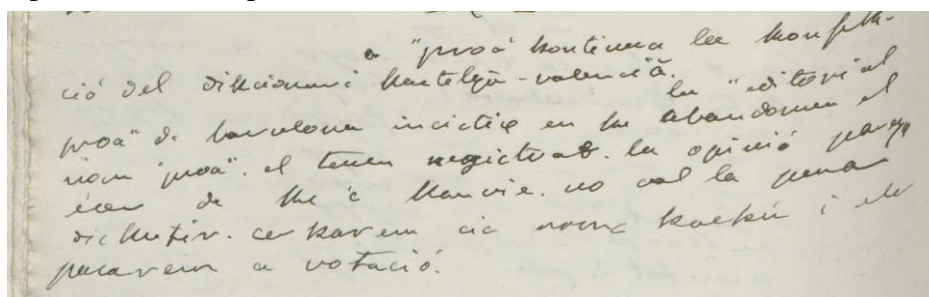 a "proa" kontinua la konfek-
ció del dikcionari kastelyà-valencià.
la "editorial
proa" de barcelona incictix en ke abandonem el
nom "proa". el tenen regictrat. la opinió
és de ke é kanvie. no val la pena
dickutir. cerkarem cic nomc i elc
pacarem a votació.